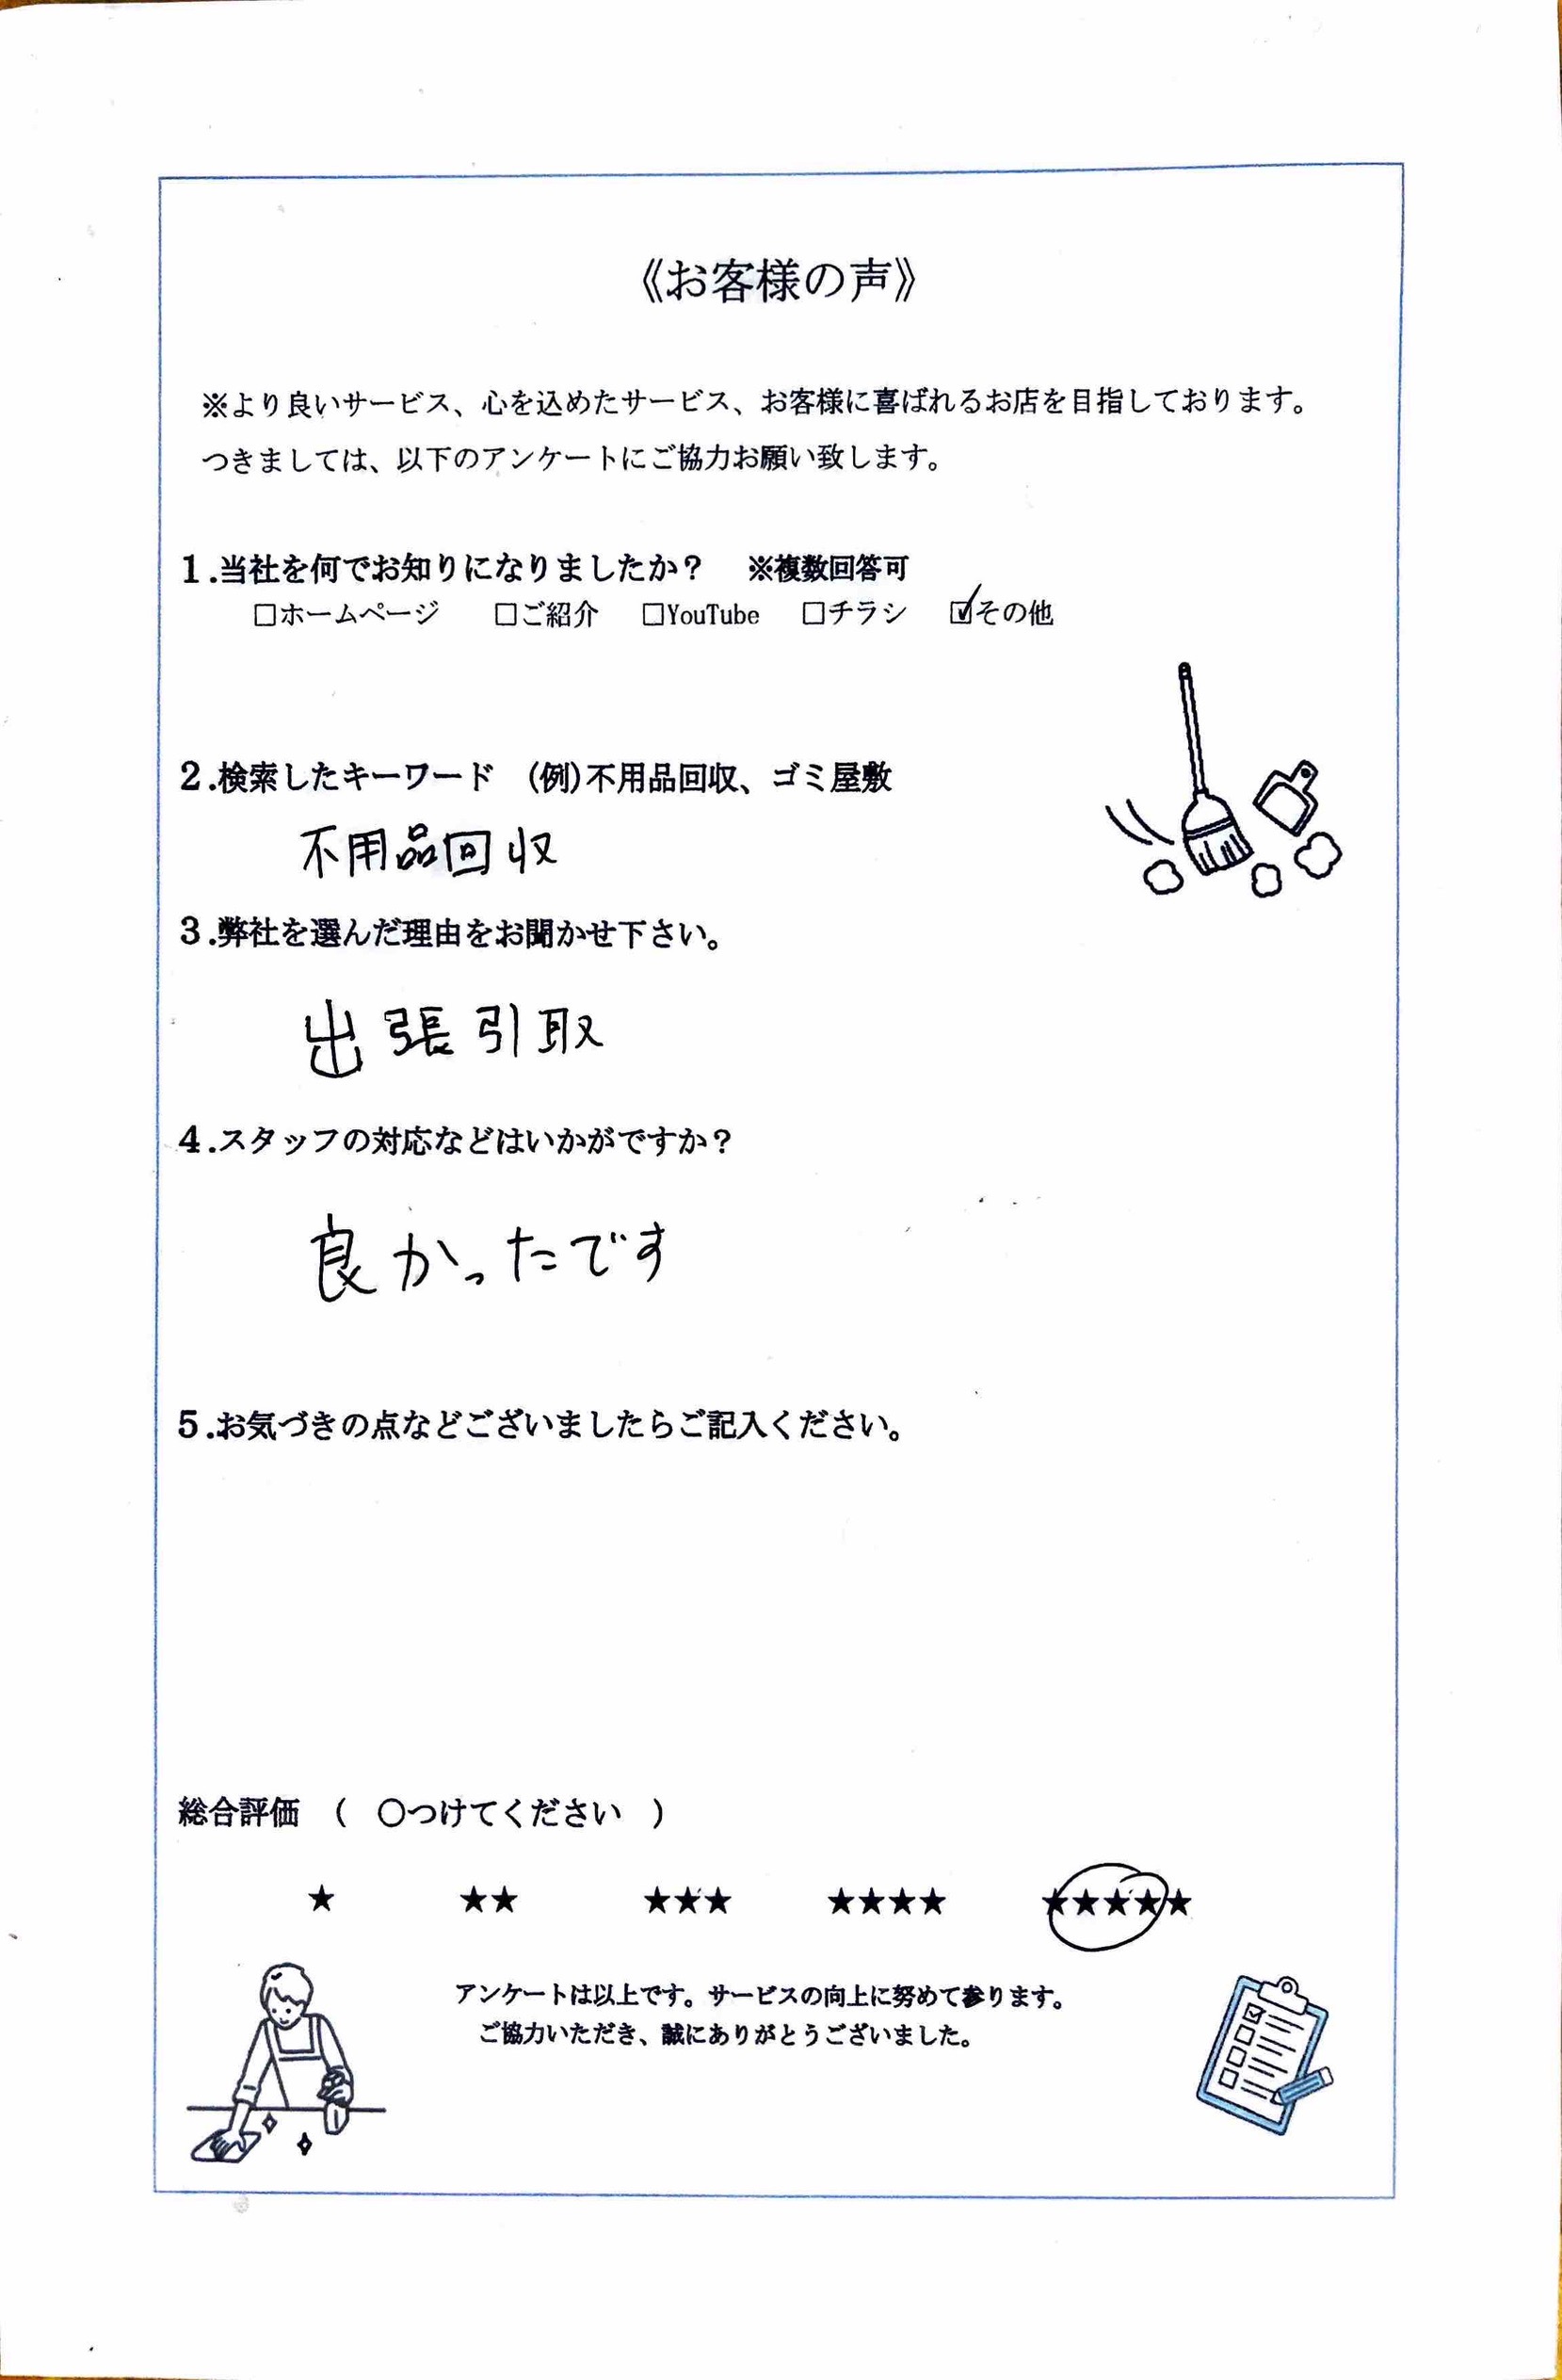 《お客様の声》
※より良いサービス、心を込めたサービス、お客様に喜ばれるお店を目指しております。
つきましては、以下のアンケートにご協力お願い致します。
1.当社を何でお知りになりましたか？　※複数回答可
□ホームページ　□ご紹介　□YouTube　□チラシ　☑その他
2.検索したキーワード　(例)不用品回収、ゴミ屋敷
不用品回収
3.弊社を選んだ理由をお聞かせ下さい。
出張引取
4.スタッフの対応などはいかがですか？
良かったです
5.お気づきの点などございましたらご記入ください。
総合評価　(　○つけてください　)
★　★★　★★★　★★★★　★★★★★
アンケートは以上です。サービスの向上に努めて参ります。
ご協力いただき、誠にありがとうございました。